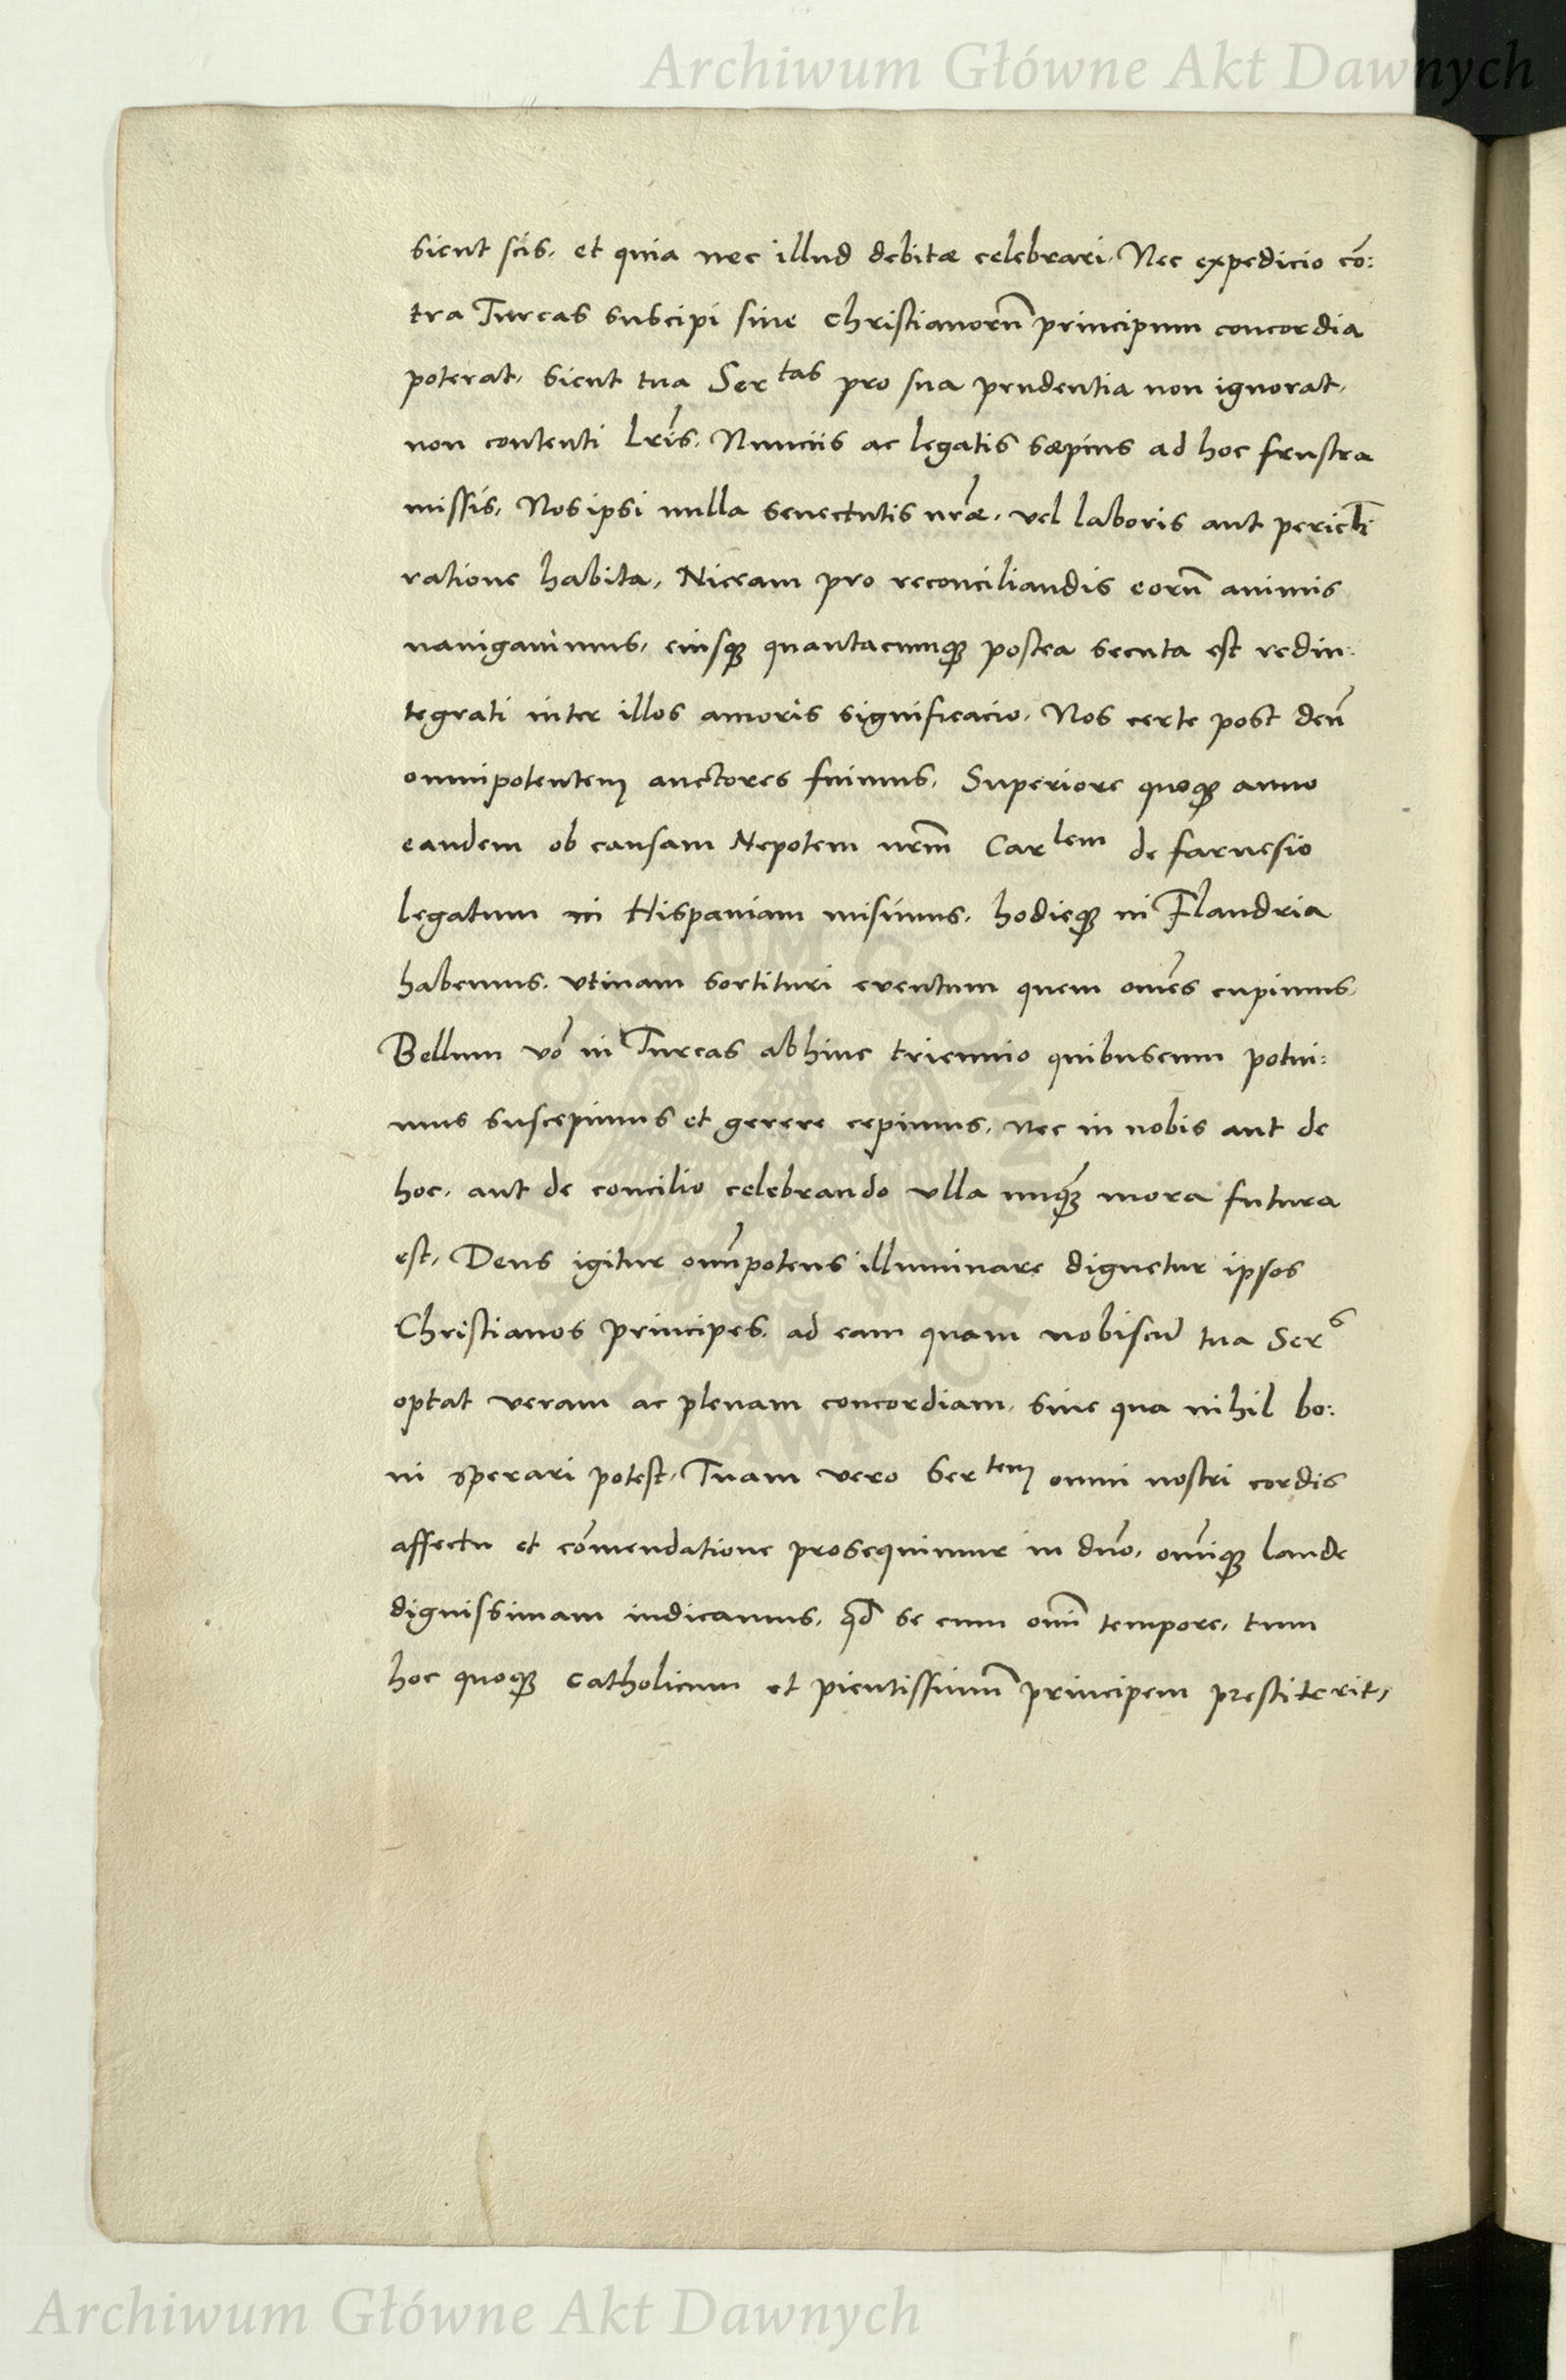 Archiwum Główne Akt Dawnych
sicut scis. et quia nec illud debitæ celebrari. Nec expedicio cō:
tra Turcas suscipi sine Christianorū principum concordia
poterat. sicut tua Ser tas pro sua prudentia non ignorat.
non contenti lr̄is. Nunciis ac legatis sæpius ad hoc frustra
missis. Nos ipsi nulla senectutis nr̄æ. vel laboris aut pericl̄i
ratione habita, Niceam pro reconciliandis eorū animis
nauigauimus. eiusq₃ quantacumq₃ postea secuta est redin:
tegrati inter illos amoris significacio. Nos certe post deū
omnipotentem auctores fuimus. Superiore quoq₃ anno
eandem ob causam Nepotem nrm̄ Car lem de farnesio
legatum in Hispaniam misimus. hodieq₃ in Flandria
habemus. vtinam sortituri euentum quem om̄es cupimus.
Bellum vō in Turcas abhinc triennio quibuscum potui:
mus suscepimus et gerere cepimus. nec in nobis aut de
hoc. aut de concilio celebrando vlla unq₃̄ mora futura
est. Deus igitur omn̄potens illuminare dignetur ipsos
Christianos principes. ad eam quam nobiscū tua Ser s
optat veram ac plenam concordiam. sine qua nihil bo:
ni sperari potest. Tuam vero Ser tem omni nostri cordis
affectu et cōmendatione prosequimur in dn̄o. om̄iq₃ laude
dignissimam iudicamus. qd̄ se cum omn̄i tempore. tum
hoc quoq₃ catholicum et pientissimū principem prestiterit,
Archiwum Główne Akt Dawnych